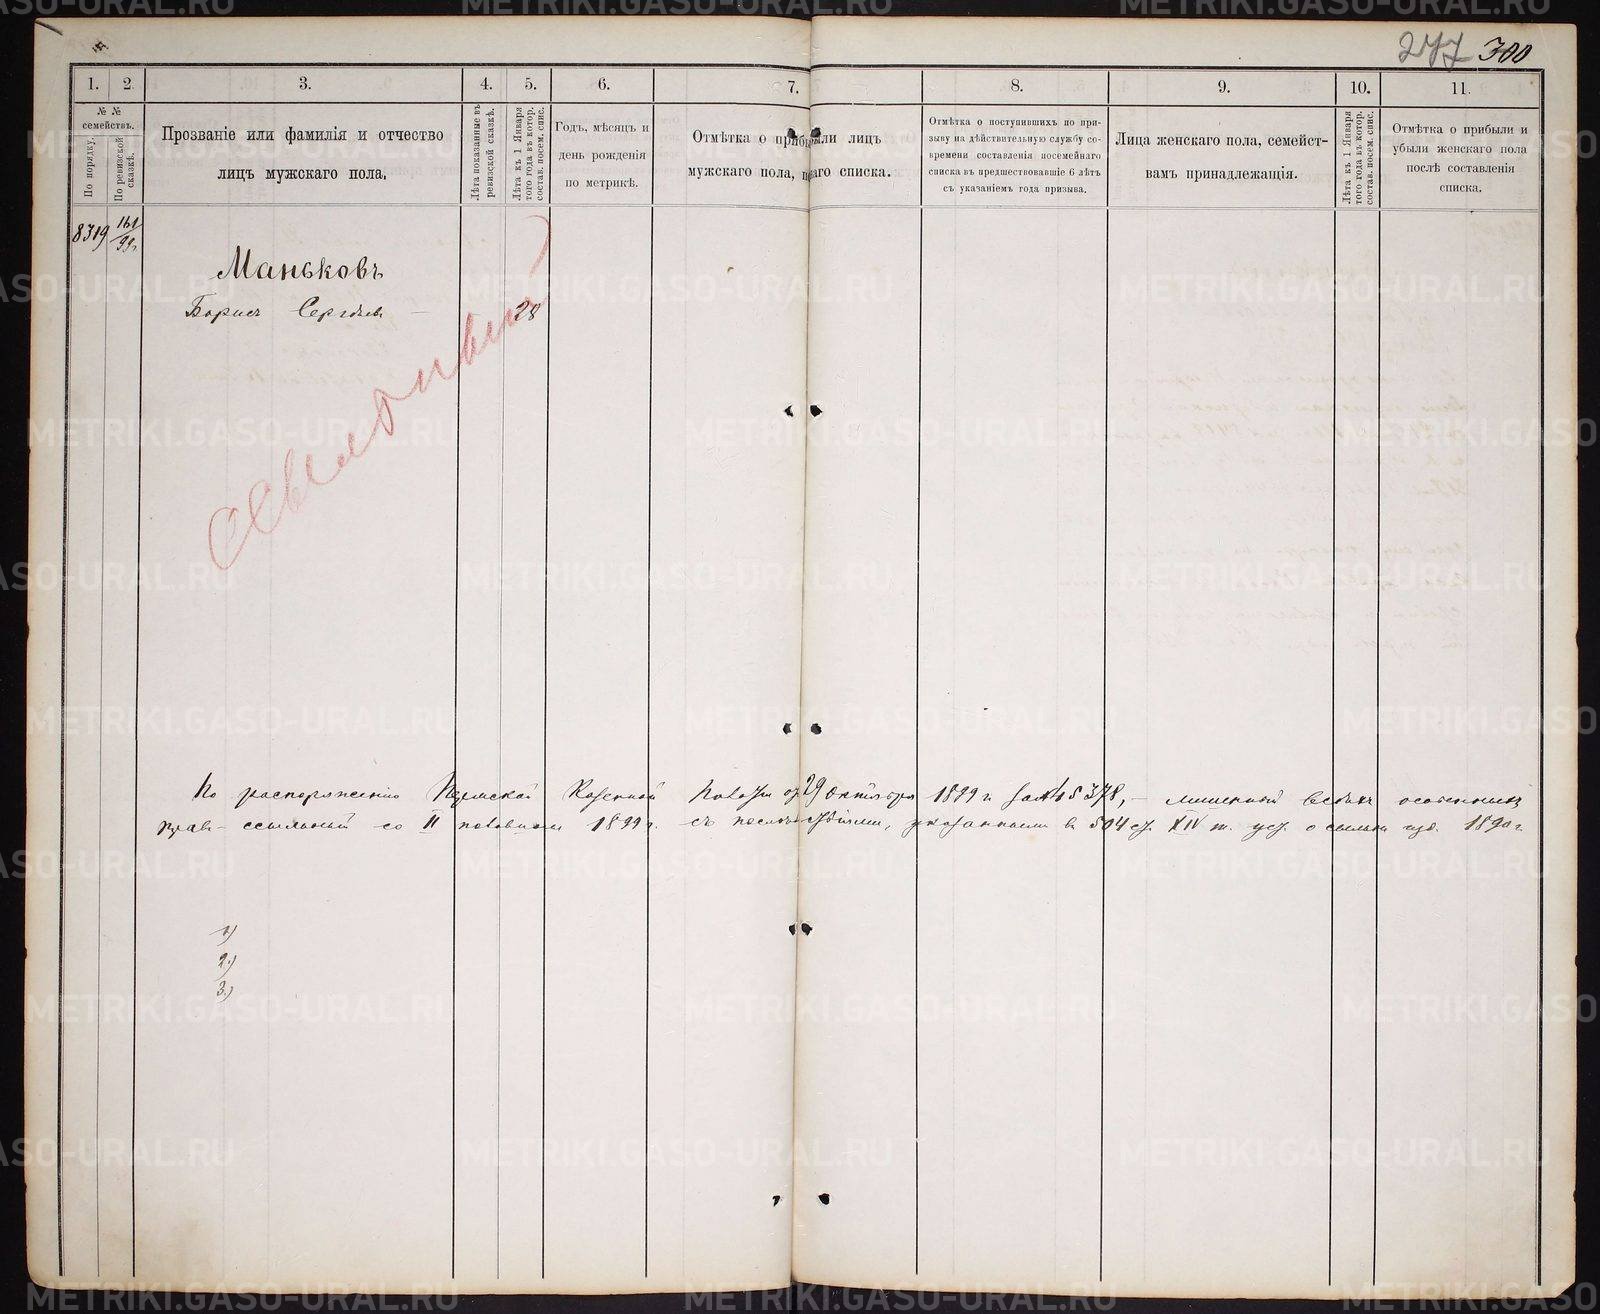 277 300
1. 2. 3. 4. 5. 6. 7. 8. 9. 10. 11.
№ № семействъ.
По порядку.
По ревизской сказкѣ.
Прозваніе или фамилія и отчество
лицъ мужскаго пола.
Лѣта показанные въ
ревизской сказкѣ.
Лѣта къ 1 Января
того года въ котор.
состав. посем. спис.
Годъ, мѣсяцъ и
день рожденія
по метрикѣ.
Отмѣтка о прибыли лицъ
мужскаго пола, списка.
Отмѣтка о поступившихъ по при-
зыву на дѣйствительную службу со-
времени составленія посемейнаго
списка въ предшествовавшіе 6 лѣтъ
съ указаніемъ года призыва.
Лица женскаго пола, семейст-
вамъ принадлежащія.
Лѣта къ 1 Января
того года въ котор.
состав. посем. спис.
Отмѣтка о прибыли и
убыли женскаго пола
послѣ составленія
списка.
8319 161/99г.
Маньковъ
Борисъ Сергѣевъ — 28
ссыльный
По распоряженію Пермской Казенной Палаты отъ 29 Октября 1899 г. за № 5378, — лишенный всѣхъ особенныхъ
прав — ссыльный со II половины 1899 г. съ послѣдствіями, указанными в 504 ст. XIV т. уст. о ссыльн. изд. 1890 г.
1)
2)
3)
METRIKI.GASO-URAL.RU